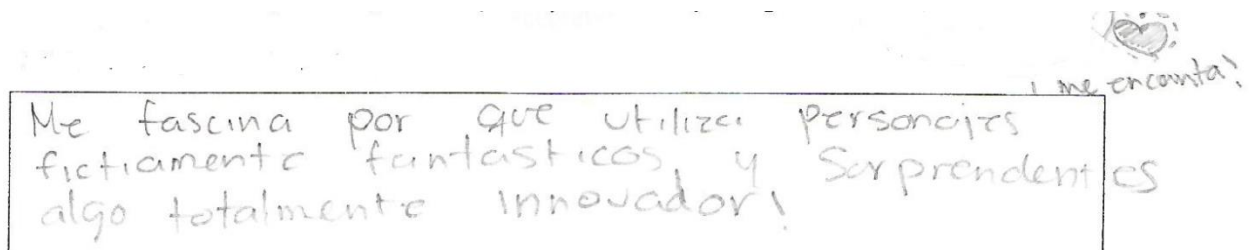 ¡me encanta!
Me fascina por que utiliza personajes
fictiamente fantasticos y Sorprendentes
algo totalmente innovador!